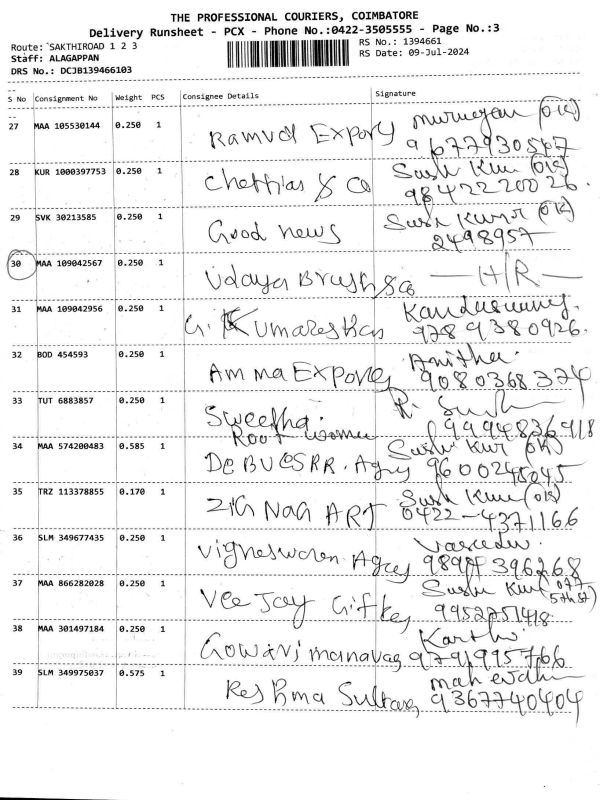 THE PROFESSIONAL COURIERS, COIMBATORE
Delivery Runsheet - PCX - Phone No.:0422-3505555 - Page No.:3
Route: SAKTHIROAD 1 2 3
RS No.: 1394661
Staff: ALAGAPPAN
RS Date: 09-Jul-2024
DRS No.: DCJB139466103
S No Consignment No Weight PCS Consignee Details Signature
27 MAA 105530144 0.250 1 Murugan (OK)
9677930547
28 KUR 1000397753 0.250 1 Chettias & Co (OK)
9842220026
29 SVK 30213585 0.250 1 Good News (OK)
2498957
30 MAA 109042567 0.250 1 Udaya Brush & Co - H/R -
31 MAA 109042956 0.250 1 G. Kumareskan Kanduswamy
9789380926
32 BOD 454593 0.250 1 Amma Expores Anitha
9080368374
33 TUT 6883857 0.250 1 Swetha
9994836918
34 MAA 574200483 0.585 1 (OK)
9600245045
35 TRZ 113378855 0.170 1 ZIG NAG ART (OK)
0422-4371166
36 SLM 349677435 0.250 1 Vigneswaren Agcy
396268
37 MAA 866282028 0.250 1 Vee Jay
9952751418
38 MAA 301497184 0.250 1 Gowri manavag Karthi
9791995766
39 SLM 349975037 0.575 1 Reshma Sultana
9367740404